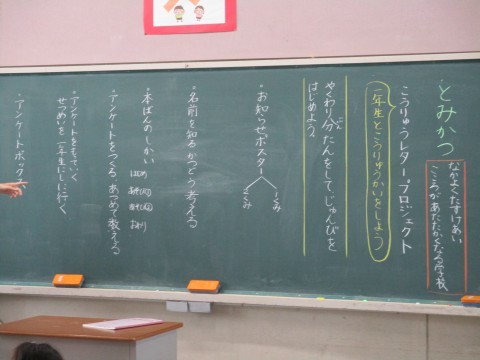 とみかつ
なかよくたすけあい
こころがあたたかくなる学校
こうりゅうレタープロジェクト
一年生とこうりゅうかいをしよう
やくわり分たんをして、じゅんびを
はじめよう。
・お知らせポスター
・名前を知るかつどう考える
・本ばんのしかい
はじめ
おわり
・アンケートをつくる、あつめて数える
・アンケートをもっていく
せつめいを一年生にしに行く
・アンケートボックス